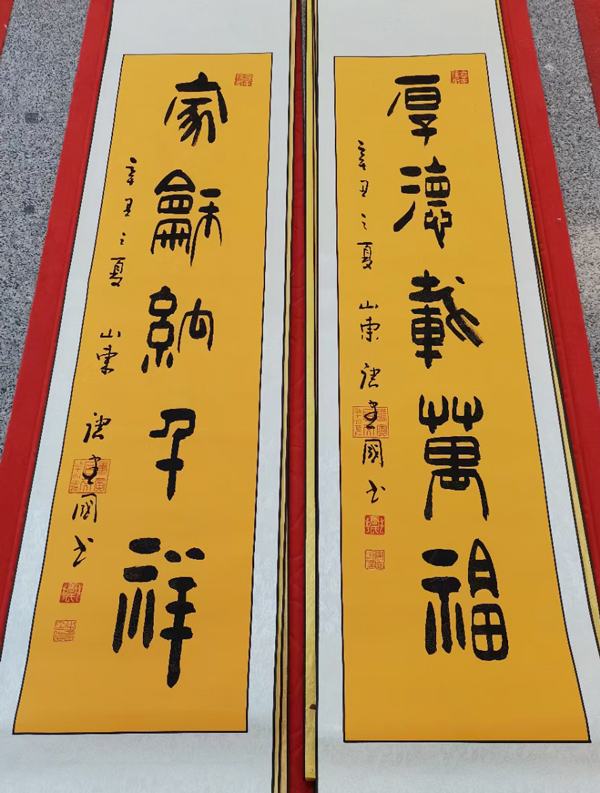 厚德載萬福
辛丑之夏 山東 建國书
家龢納千祥
辛丑之夏 山東 建國书